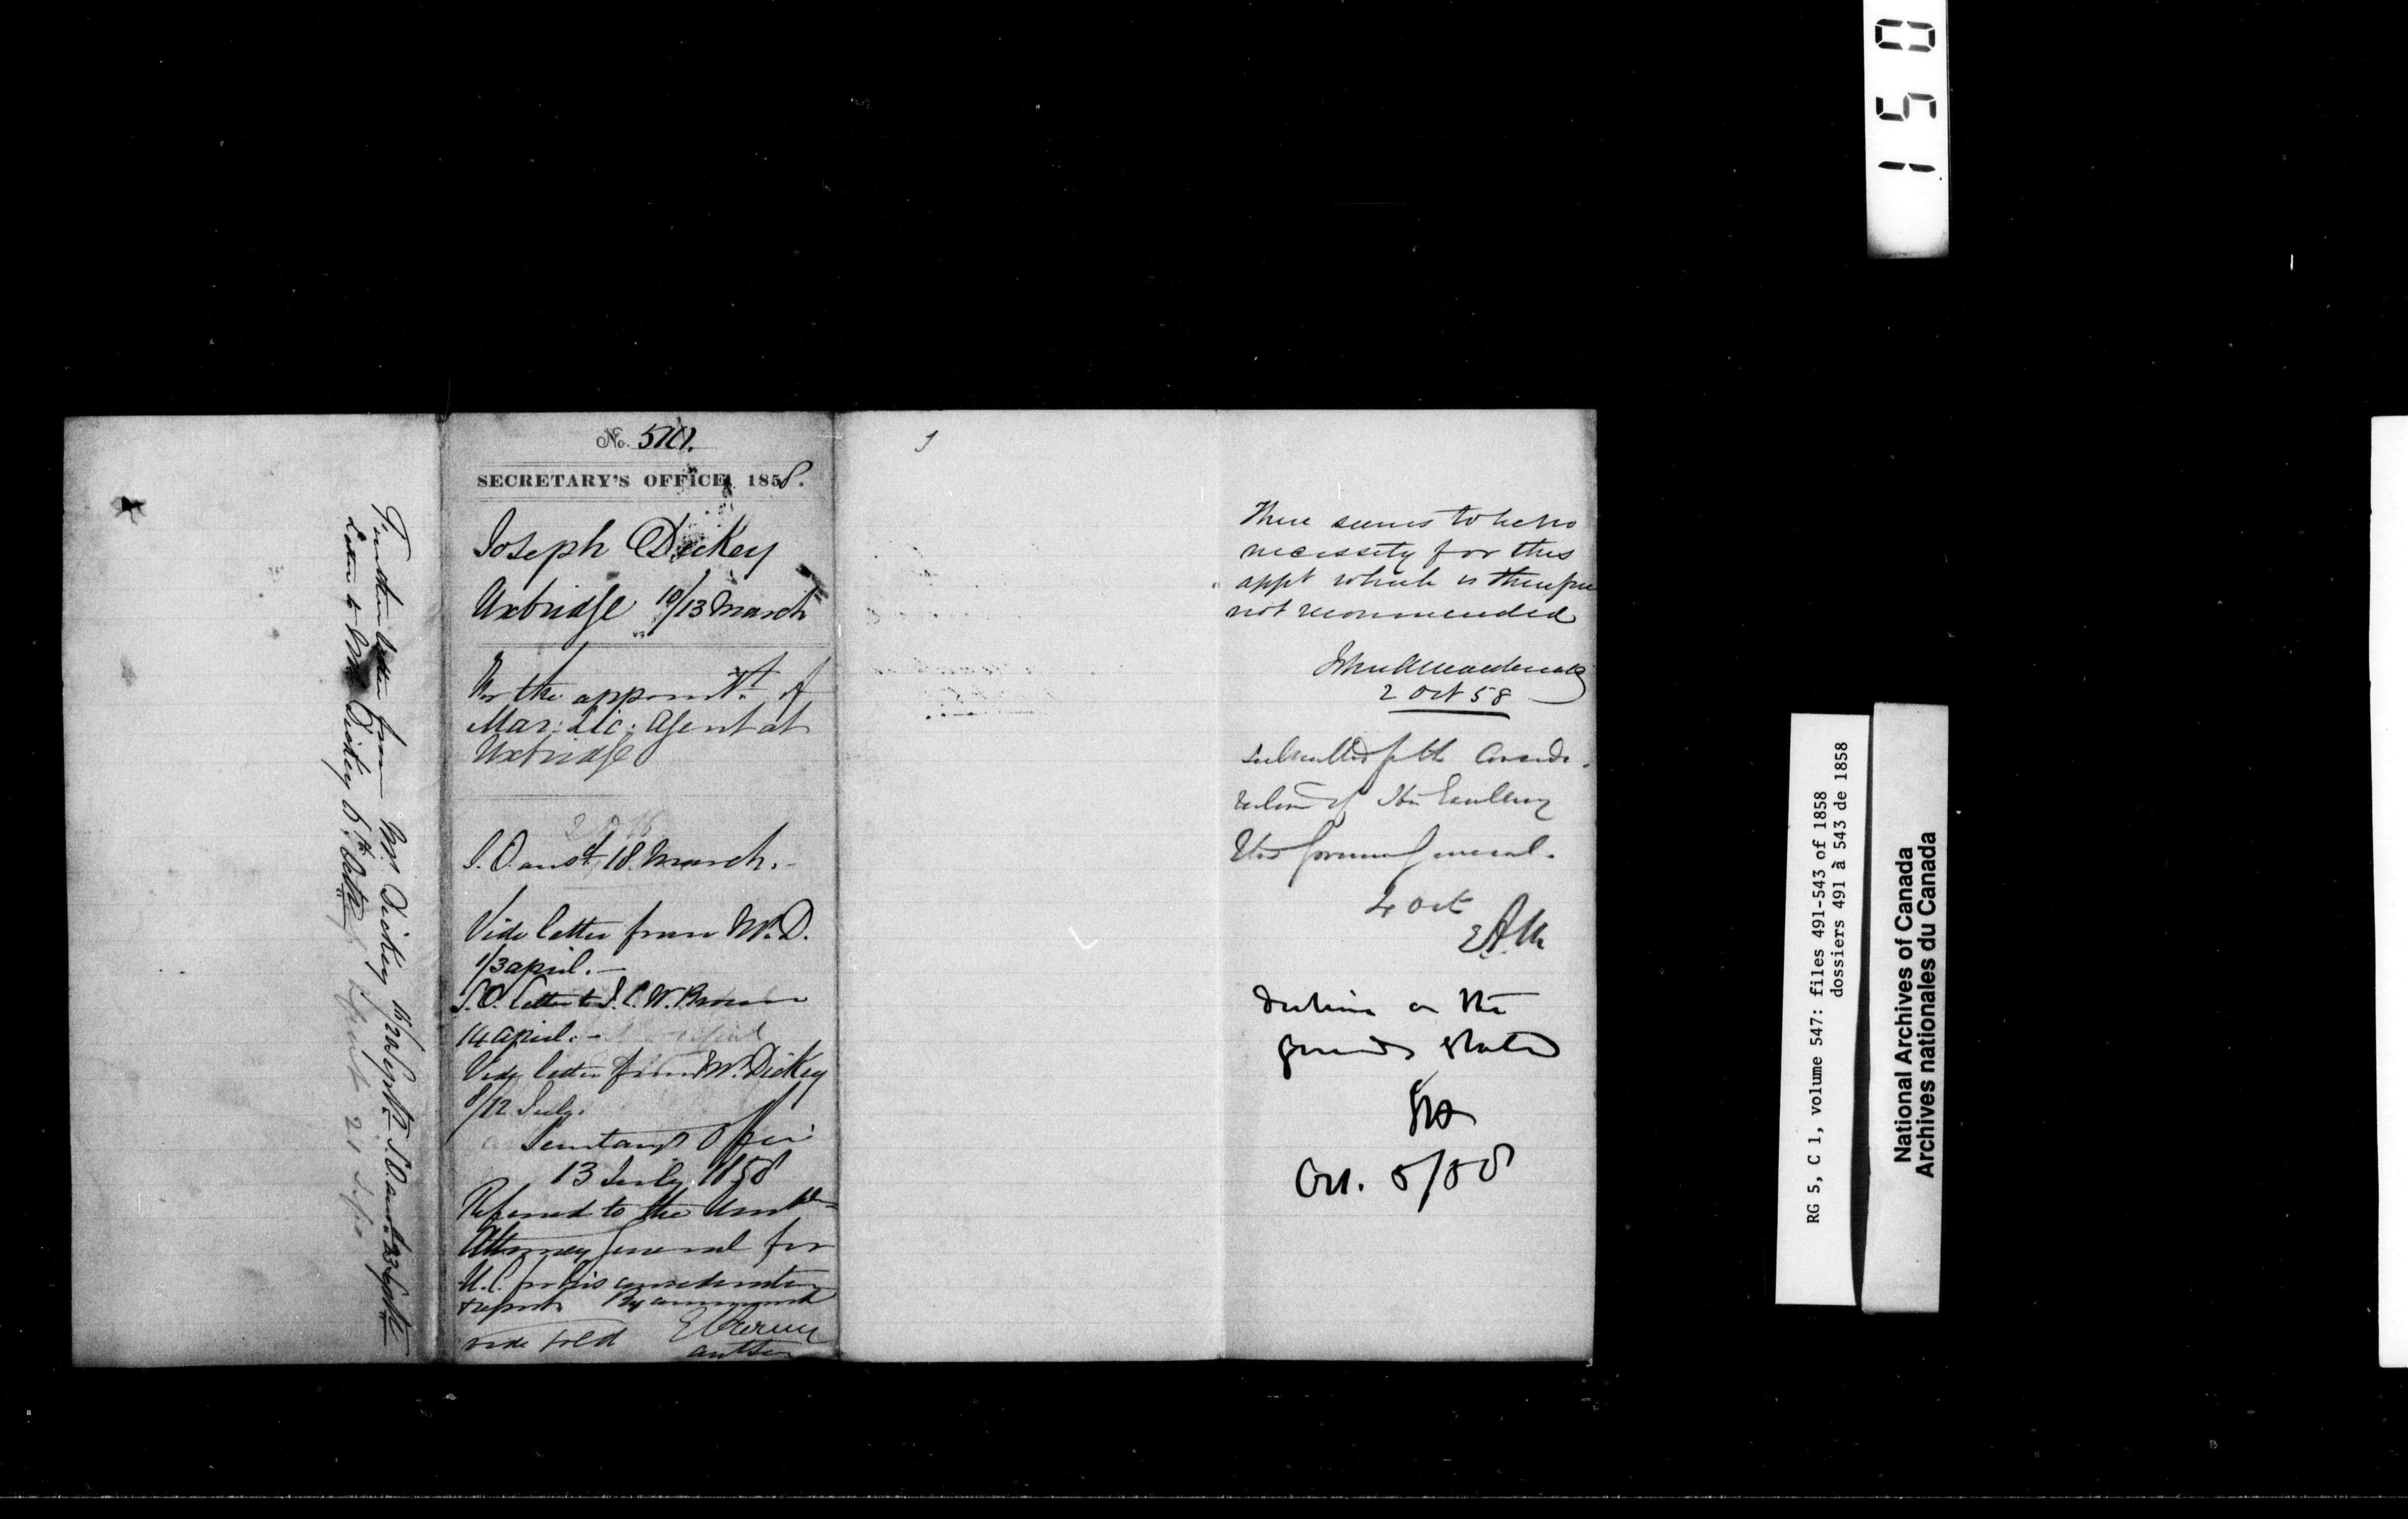 150
No. 510.
SECRETARY'S OFFICE, 1858.
Joseph Dickey
Uxbridge 10/13 March
For the appointt. of
Mar: Lic: Agent at
Uxbridge
S.O. ansd. 18 March.
Vide letter from Mr. D.
1/3 April.
S.O. letter to J.C.W.
14 April.
Vide letter from Mr. Dickey
/12 July.
Secretary's Office
13 July 1858
Referred to the Honble
Attorney General for
U.C. for his consideration
& report. By command
vide fold
Further letter from Mr. Dickey 16/20 Septr. S.O. ans. 23 Septr.
Letter to Mr. Dickey 6th Octr.
There seems to be no
necessity for this
appt which is therefore
not recommended
John A Macdonald
2 Oct 58
Submitted for the Conside-
ration of His Excellency
the Governor General.
4 Oct
decline on the
grounds stated
Oct. 5/58
RG 5, C 1, volume 547: files 491-543 of 1858
dossiers 491 à 543 de 1858
National Archives of Canada
Archives nationales du Canada